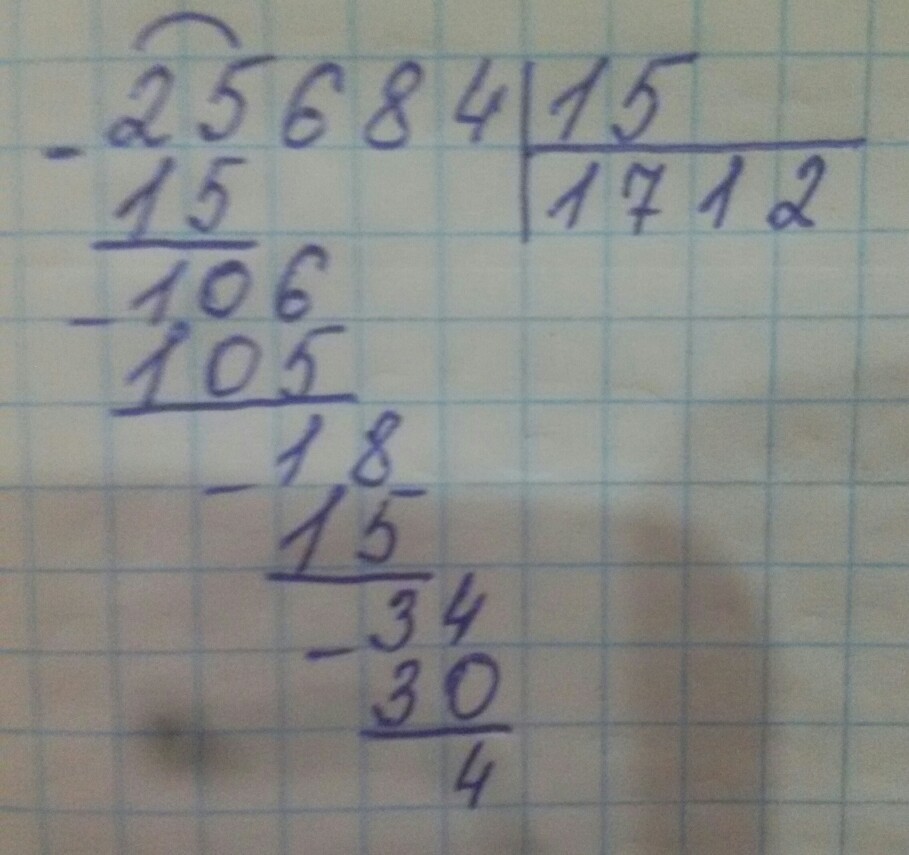 - 25684 | 15
15 | 1712
- 106
105
- 18
15
- 34
30
4